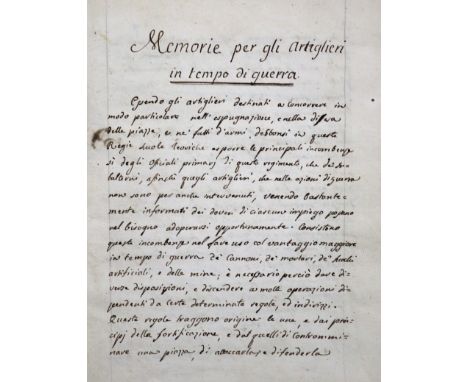 Memorie per gli Artiglieri
in tempo di guerra
Essendo gli artiglieri destinati a concorrere in
modo particolare nell'espugnazione, e nella difesa
delle piazze, e ne' fatti d'armi, debbonsi in queste
Regie Scuole Teoriche esporre le principali incombenze
sì degli Ofiziali primarj di questo regimento, che de' su-
balterni, affinchè quegli artiglieri, che nelle azioni di guerra
non sono per anche intervenuti, venendo bastante-
mente informati dei doveri di ciascun impiego possano
nel bisogno adoperarsi opportunamente. Consistono
queste incombenze nel fare uso col vantaggio maggiore
in tempo di guerra de' Cannoni, de' mortari, de' fuochi
artificiali, e delle mine; è necessario perciò dare di-
verse disposizioni, e discendere a molte operazioni di-
pendenti da certe determinate regole, ed indirizzi.
Queste regole traggono origine le une, e dai prin-
cipj della fortificazione, e dal quelli di contrammi-
nare una piazza, di attaccarla, e difenderla